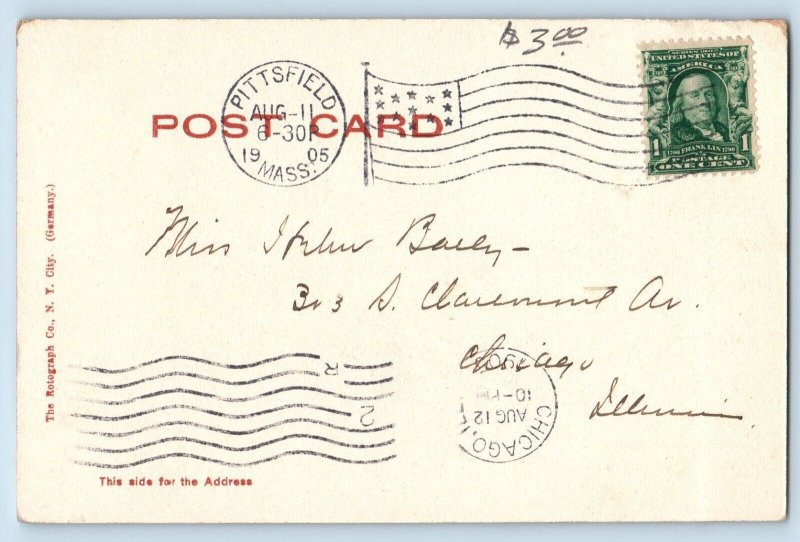 $3.00
SERIES 1902
UNITED STATES OF
1706 FRANKLIN 1790
1 POSTAGE 1
ONE CENT
PITTSFIELD
AUG-11
6-30P
1905
MASS.
POST CARD
Miss Bailey -
303 S. Claremont Av.
Chicago
Illinois
The Rotograph Co., N. Y. City. (Germany.)
R
2
CHICAGO, ILL.
AUG 12
10-PM
This side for the Address